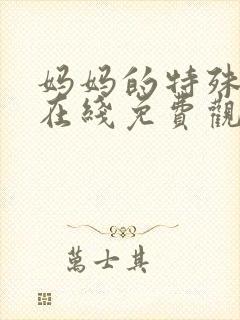 妈妈的特殊
在綫免費觀
萬士其